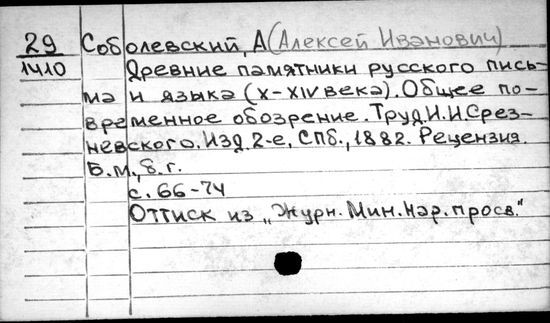 29 Соболевский, А (Алексей Иванович)
1410 Древние памятники русского пись-
ма и языка (X-XIV века). Общее по-
временное обозрение. Труд И.И.Срез-
невского. Изд. 2-е, СПб., 1882. Рецензия.
Б.м., б. г.
с. 66-74
Оттиск из „Журн. Мин. Нар. просв."